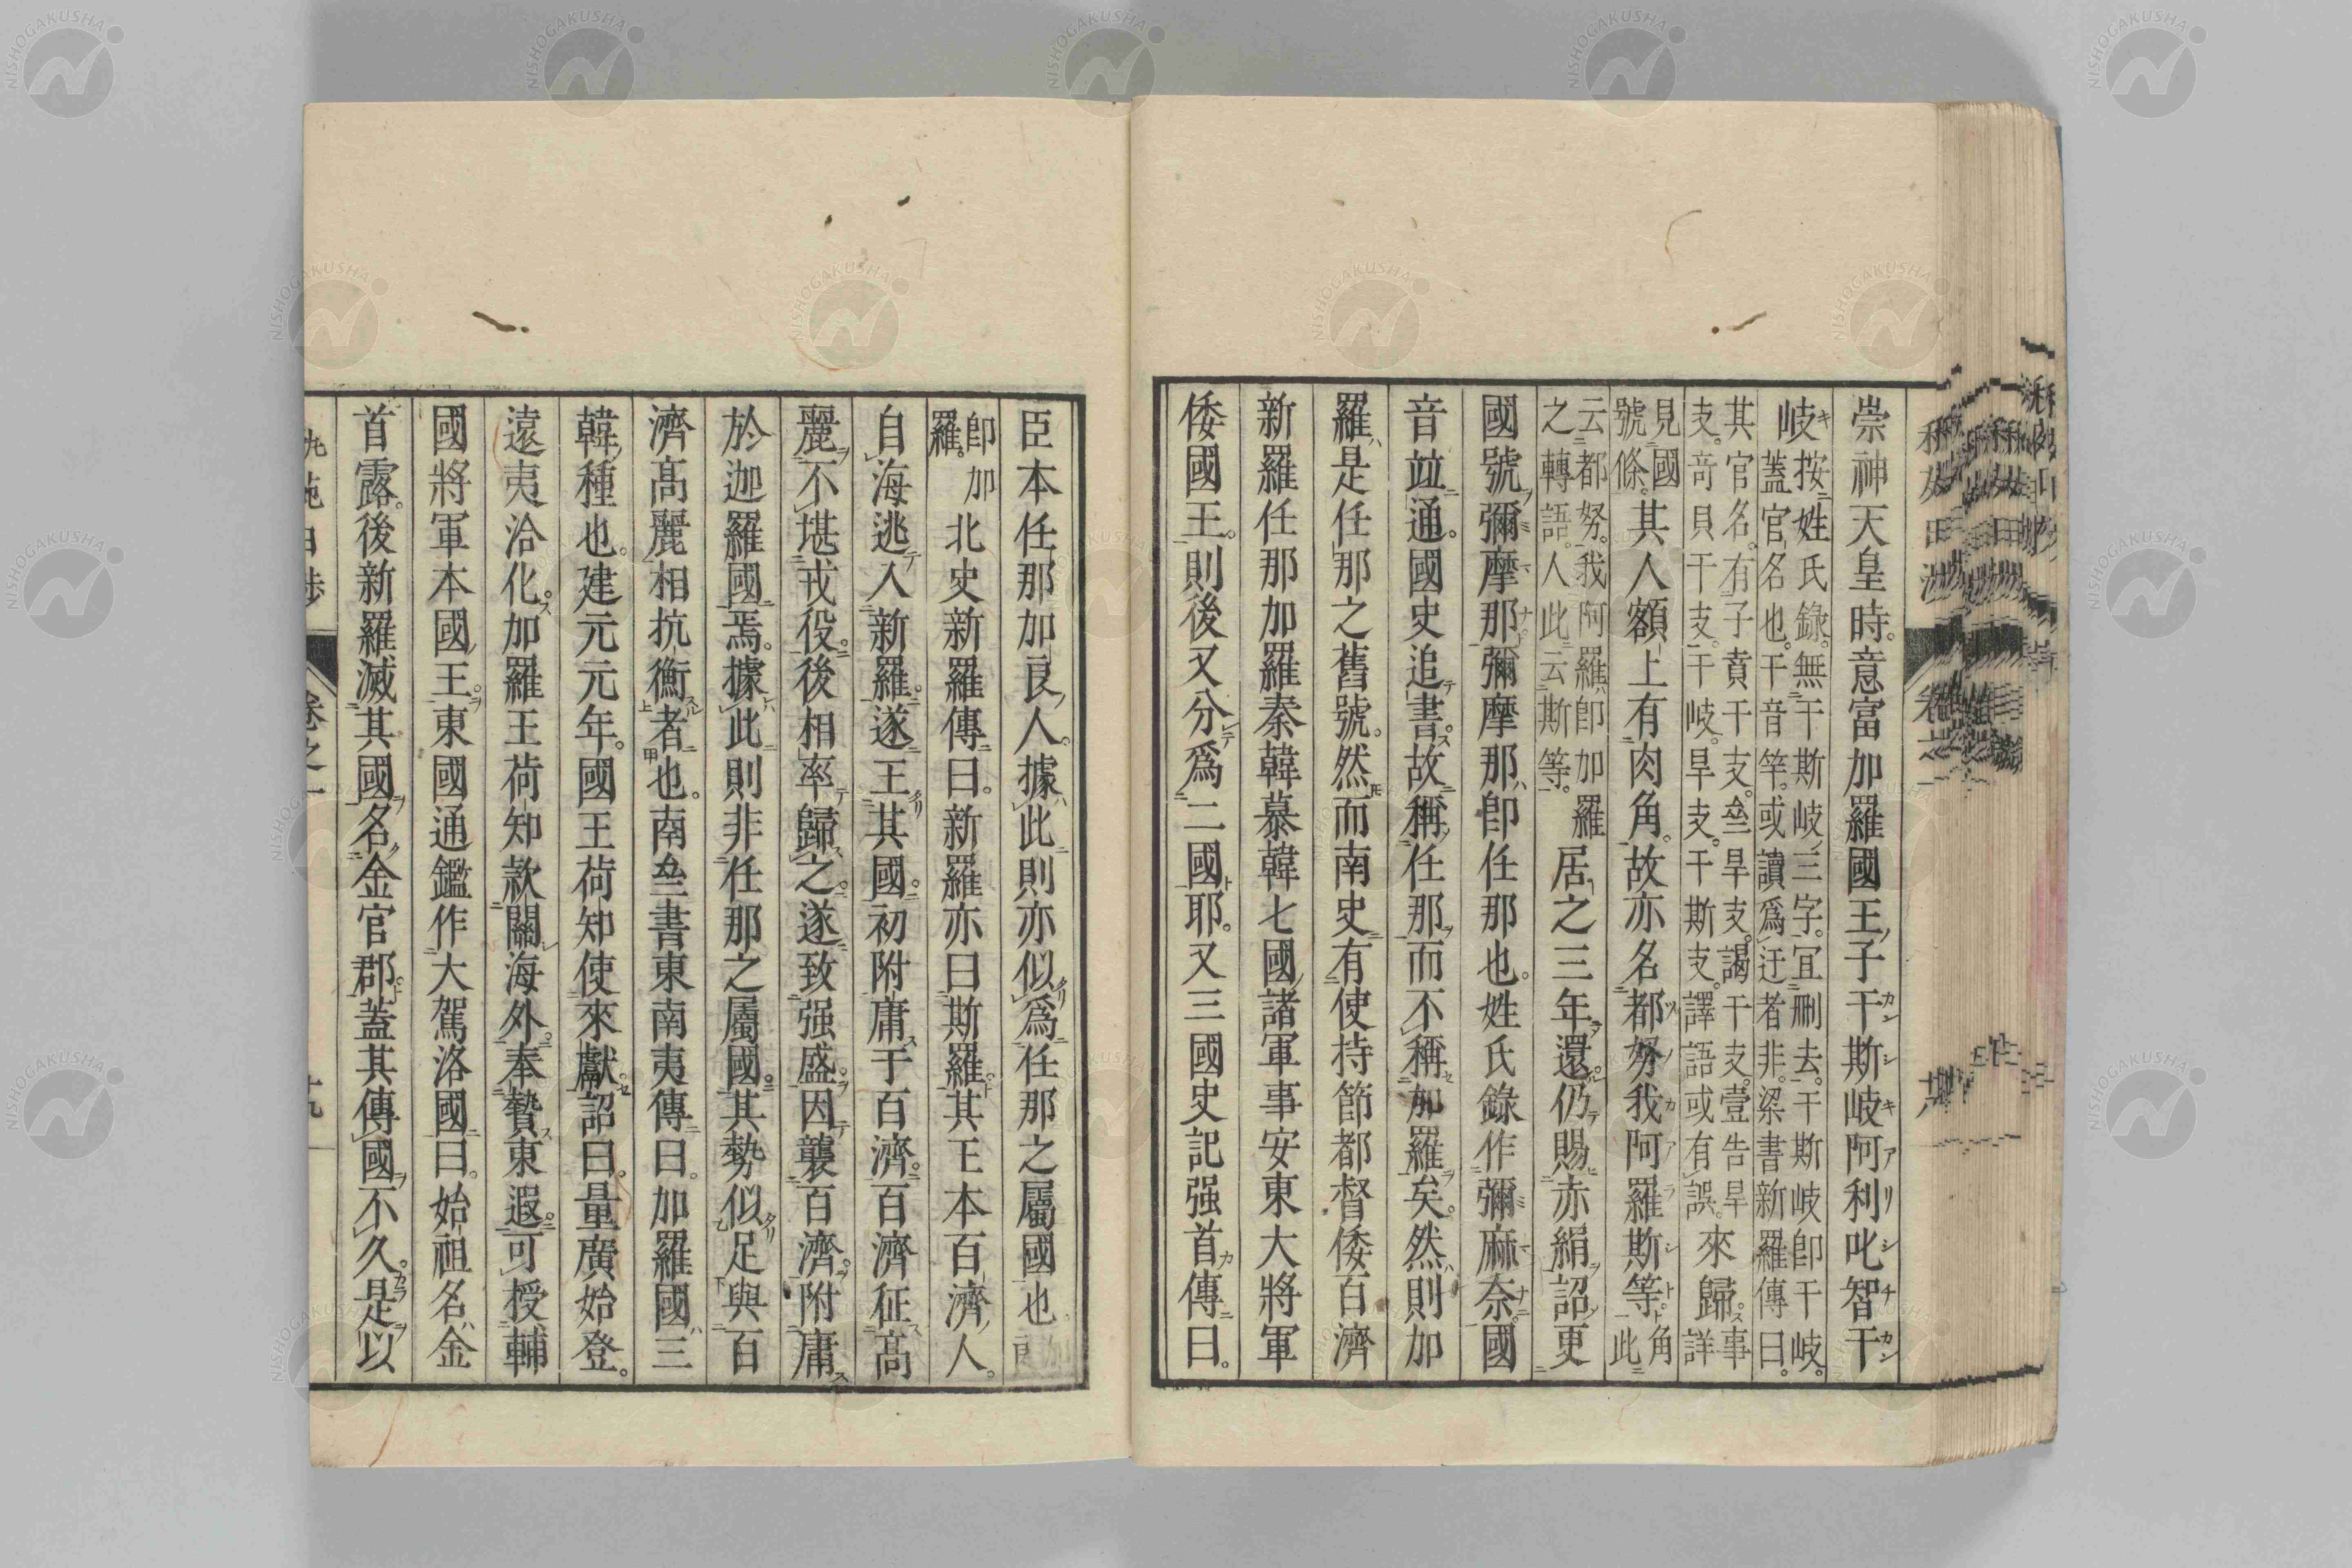 崇神天皇時。意富加羅國王子干斯岐阿利叱智干
岐
按姓氏錄。無干斯岐三字。宜刪去。干斯岐卽干岐。
蓋官名也。干音竿。或讀爲迂者非。梁書新羅傳曰。
其官名。有子賁干支。壹旱支。謁干支。壹告旱
支。奇貝干支。干岐。旱支。干斯支。譯語或有誤。
來歸。
事詳
見國
號條。
其人額上有肉角。故亦名都努我阿羅斯等。
角此
云都努。我阿羅卽加羅
之轉語。人此云斯等。
居之三年還。仍賜赤絹詔更
國號彌摩那。彌摩那卽任那也。姓氏錄作彌麻奈國
音竝通。國史追書。故稱任那。而不稱加羅矣。然則加
羅是任那之舊號。然而南史有使持節都督倭百濟
新羅任那加羅秦韓慕韓七國諸軍事安東大將軍
倭國王。則後又分爲二國耶。又三國史記强首傳曰。
臣本任那加良人。據此則亦似爲任那之屬國也
良
卽加
羅。
北史新羅傳曰。新羅亦曰斯羅。其王本百濟人。
自海逃入新羅。遂王其國。初附庸于百濟。百濟征高
麗。不堪戎役。後相率歸之。遂致强盛。因襲百濟。附庸
於迦羅國焉。據此則非任那之屬國。其勢似足與百
濟高麗相抗衡者也。南齊書東南夷傳曰。加羅國三
韓種也。建元元年。國王荷知使來獻。詔曰。量廣始登。
遠夷洽化。加羅王荷知款關海外。奉贄東遐。可授輔
國將軍本國王。東國通鑑作大駕洛國曰。始祖名金
首露。後新羅滅其國名金官郡。蓋其傳國不久。是以
卷之一
十九